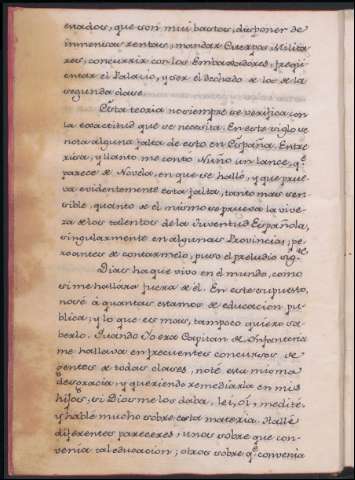 evados, que son mui bastos, disponer de
inmensas rentas, mandar Cuerpos Milita-
res, concurrir con los Embaxadores, freqü
entar el Palacio, y ser el dechado de los de la
segunda clase.
Esta teoria no siempre se verifica con
la exactitud que se necesita. En este siglo se
nota alguna falta de esto en España. Entre
risa, y llanto me contó Nuño un lance, q.e
parece de Novela, en que se halló, y que prue-
va evidentemente esta falta, tanto mas sen-
sible, quanto de el mismo se prueba la vive-
za de los talentos de la Juventud Española,
singularmente en algunas Provincias; pe-
ro antes de contarmelo, puso el preludio sig.te
Dias ha que vivo en el mundo, como
si me hallara fuera de él. En este supuesto,
no sé á quantas estamos de educacion pu-
blica; y lo que es mas, tampoco quiero sa-
berlo. Quando Yo era Capitan de Infanteria
me hallava en frequentes concursos de
gentes de todas clases, noté esta misma
desgracia; y queriendo remediarla en mis
hijos, si Dios me los daba, leí, oí, medité,
y hable mucho sobre esta materia. Hallé
diferentes pareceres; unos sobre que con-
venía tal educacion; otros sobre q.e convenia